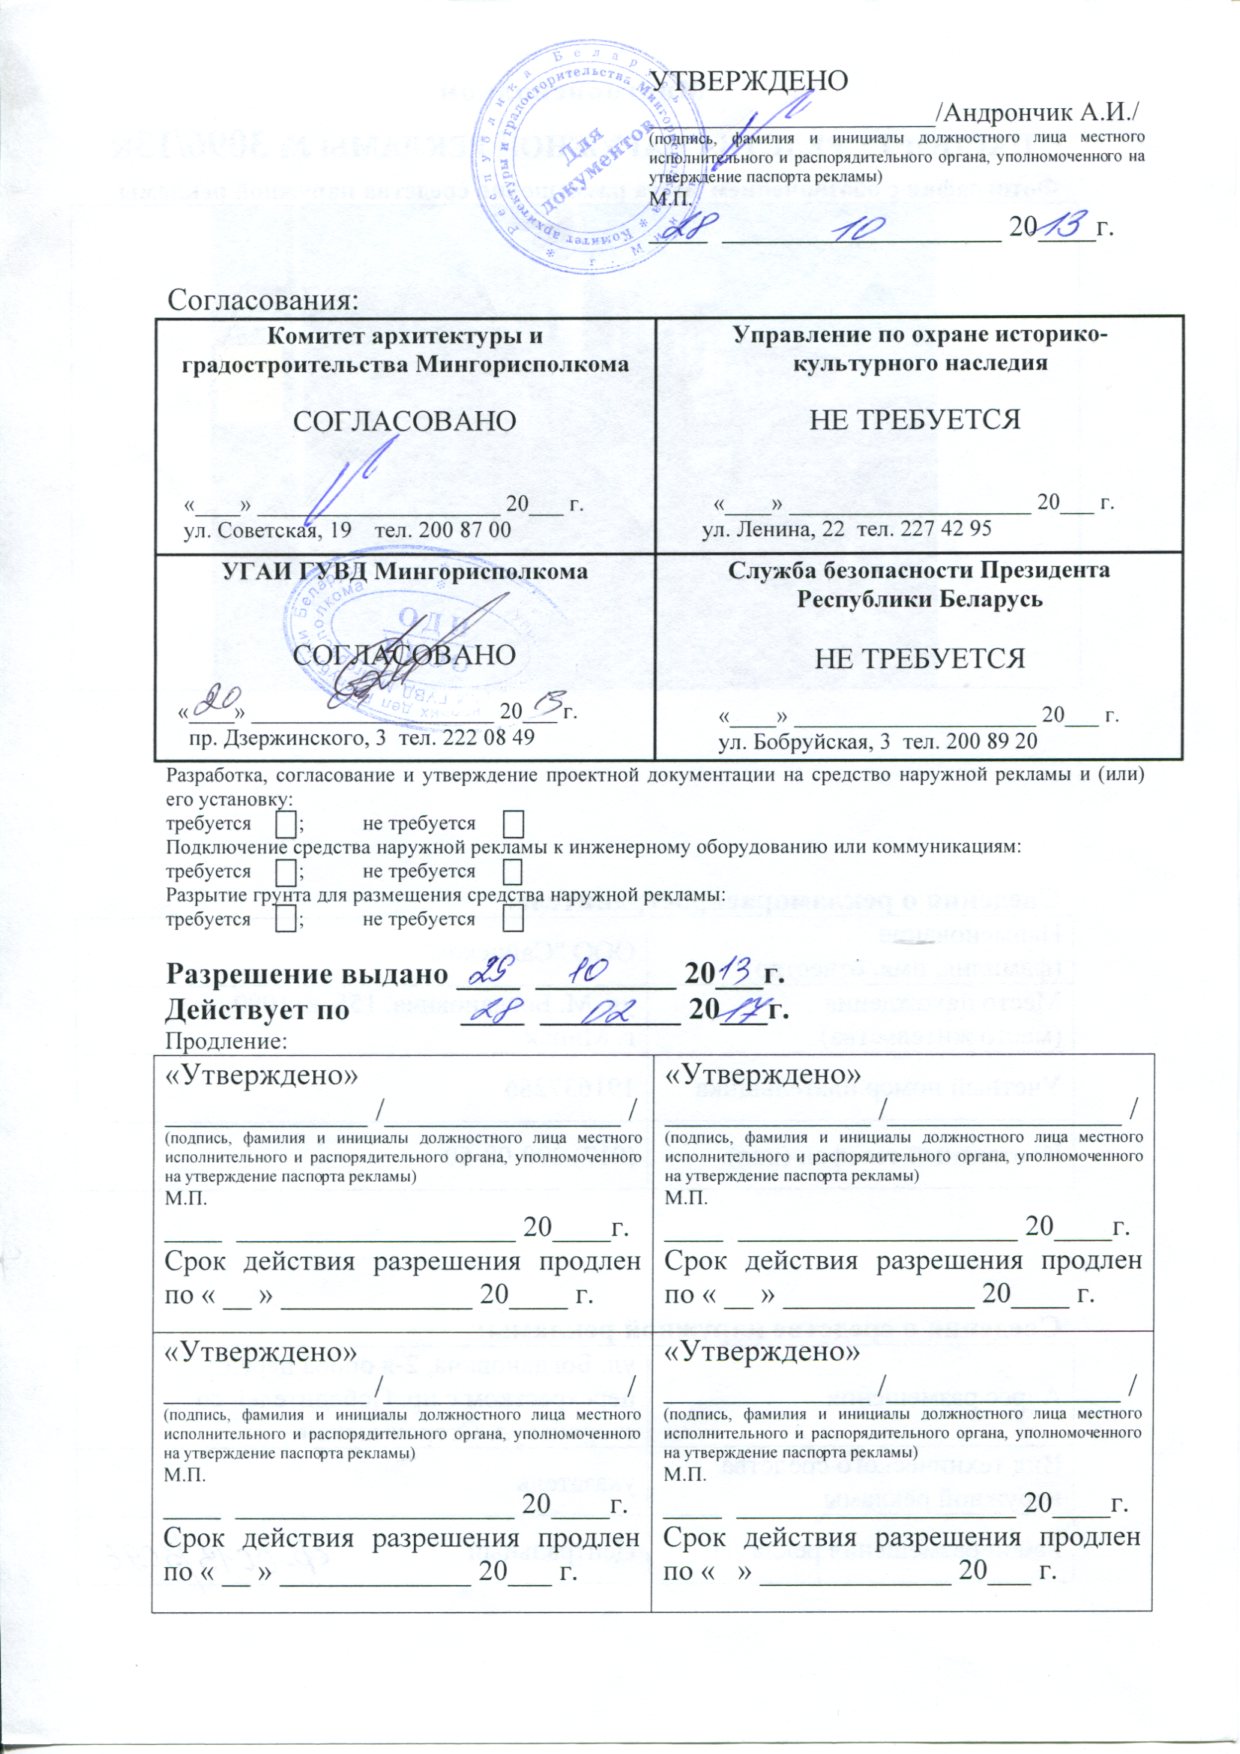 УТВЕРЖДЕНО
/Андрончик А.И./
(подпись, фамилия и инициалы должностного лица местного
исполнительного и распорядительного органа, уполномоченного на
утверждение паспорта рекламы)
М.П.
28 10 2013 г.
Для
документов
Республика Беларусь
Комитет архитектуры и градостроительства
Согласования:
Комитет архитектуры и
градостроительства Мингорисполкома
СОГЛАСОВАНО
«____» ____________________ 20___ г.
ул. Советская, 19 тел. 200 87 00
Управление по охране историко-
культурного наследия
НЕ ТРЕБУЕТСЯ
«____» ____________________ 20___ г.
ул. Ленина, 22 тел. 227 42 95
УГАИ ГУВД Мингорисполкома
СОГЛАСОВАНО
«20» 09 2013 г.
пр. Дзержинского, 3 тел. 222 08 49
Служба безопасности Президента
Республики Беларусь
НЕ ТРЕБУЕТСЯ
«____» ____________________ 20___ г.
ул. Бобруйская, 3 тел. 200 89 20
Разработка, согласование и утверждение проектной документации на средство наружной рекламы и (или)
его установку:
требуется ; не требуется
Подключение средства наружной рекламы к инженерному оборудованию или коммуникациям:
требуется ; не требуется
Разрытие грунта для размещения средства наружной рекламы:
требуется ; не требуется
Разрешение выдано 29 10 2013 г.
Действует по 28 02 2017 г.
Продление:
«Утверждено»
_______________ /_________________ /
(подпись, фамилия и инициалы должностного лица местного
исполнительного и распорядительного органа, уполномоченного
на утверждение паспорта рекламы)
М.П.
____ ____________________ 20____г.
Срок действия разрешения продлен
по « __ » ______________ 20____ г.
«Утверждено»
_______________ /_________________ /
(подпись, фамилия и инициалы должностного лица местного
исполнительного и распорядительного органа, уполномоченного
на утверждение паспорта рекламы)
М.П.
____ ____________________ 20____г.
Срок действия разрешения продлен
по « __ » ______________ 20____ г.
«Утверждено»
_______________/_________________ /
(подпись, фамилия и инициалы должностного лица местного
исполнительного и распорядительного органа, уполномоченного
на утверждение паспорта рекламы)
М.П.
____ ____________________ 20____г.
Срок действия разрешения продлен
по « __ » ______________ 20___ г.
«Утверждено»
_______________/_________________ /
(подпись, фамилия и инициалы должностного лица местного
исполнительного и распорядительного органа, уполномоченного
на утверждение паспорта рекламы)
М.П.
____ ____________________ 20____г.
Срок действия разрешения продлен
по « » ______________ 20___ г.